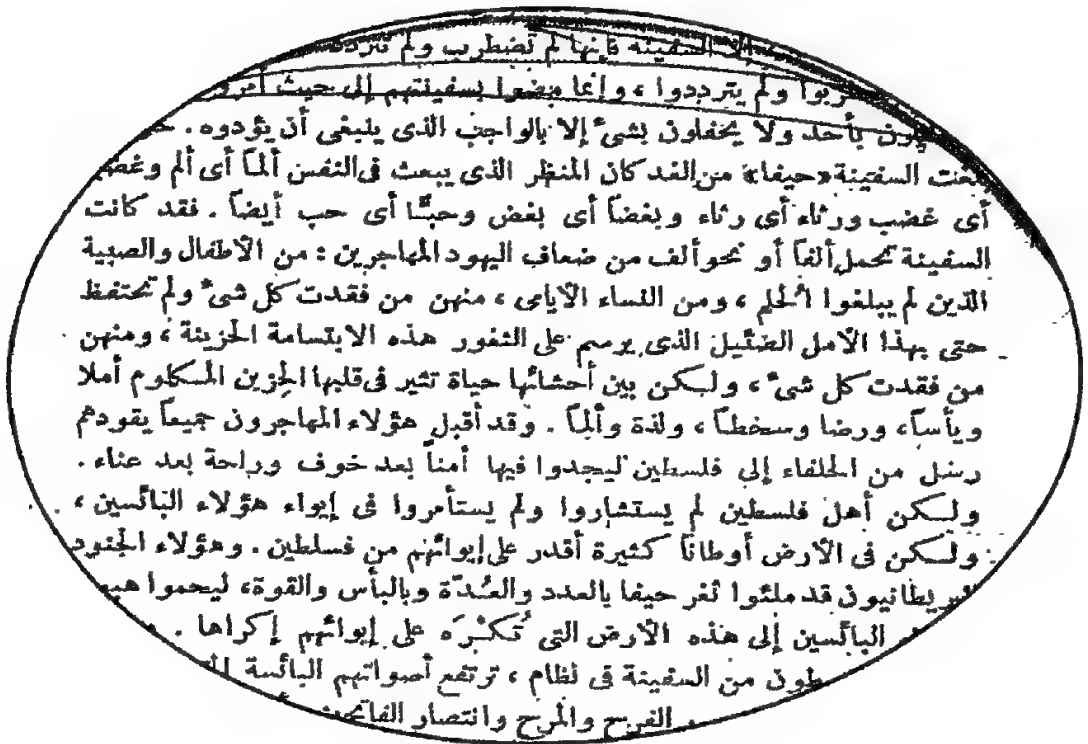 إلا السفينة فإنها لم تضطرب ولم تتردد
ولم يترددوا ، وإنما مضوا بسفينتهم إلى حيث أمروا
بأحد ولا يحفلون بشىء إلا بالواجب الذى ينبغى أن يؤدوه .
السفينة «حيفا» من الغد كان المنظر الذى يبعث فى النفس ألماً أى ألم وغضباً
أى غضب ورثاء أى رثاء وبغضاً أى بغض وحبًّا أى حب أيضاً . فقد كانت
السفينة تحمل ألفاً أو نحو ألف من ضعاف اليهود المهاجرين : من الأطفال والصبية
الذين لم يبلغوا الحلم ، ومن النساء الأيامى ، منهن من فقدت كل شىء ولم تحتفظ
حتى بهذا الأمل الضئيل الذى يرسم على الثغور هذه الابتسامة الحزينة ، ومنهن
من فقدت كل شىء ، ولكن بين أحشائها حياة تثير فى قلبها الحزين المكلوم أملا
ويأساً ، ورضا وسخطاً ، ولذة وألماً . وقد أقبل هؤلاء المهاجرون جميعاً يقودهم
رسل من الحلفاء إلى فلسطين ليجدوا فيها أمناً بعد خوف وراحة بعد عناء .
ولكن أهل فلسطين لم يستشاروا ولم يستأمروا فى إيواء هؤلاء البائسين ،
ولكن فى الأرض أوطانا كثيرة أقدر على إيوائهم من فسلطين . وهؤلاء الجنود
البريطانيون قد ملئوا ثغر حيفا بالعدد والعُدّة وبالبأس والقوة ، ليحموا
البائسين إلى هذه الأرض التى تُكْرَه على إيوائهم إكراها .
من السفينة فى نظام ، ترتفع أصواتهم البائسة
الفرح والمرح وانتصار